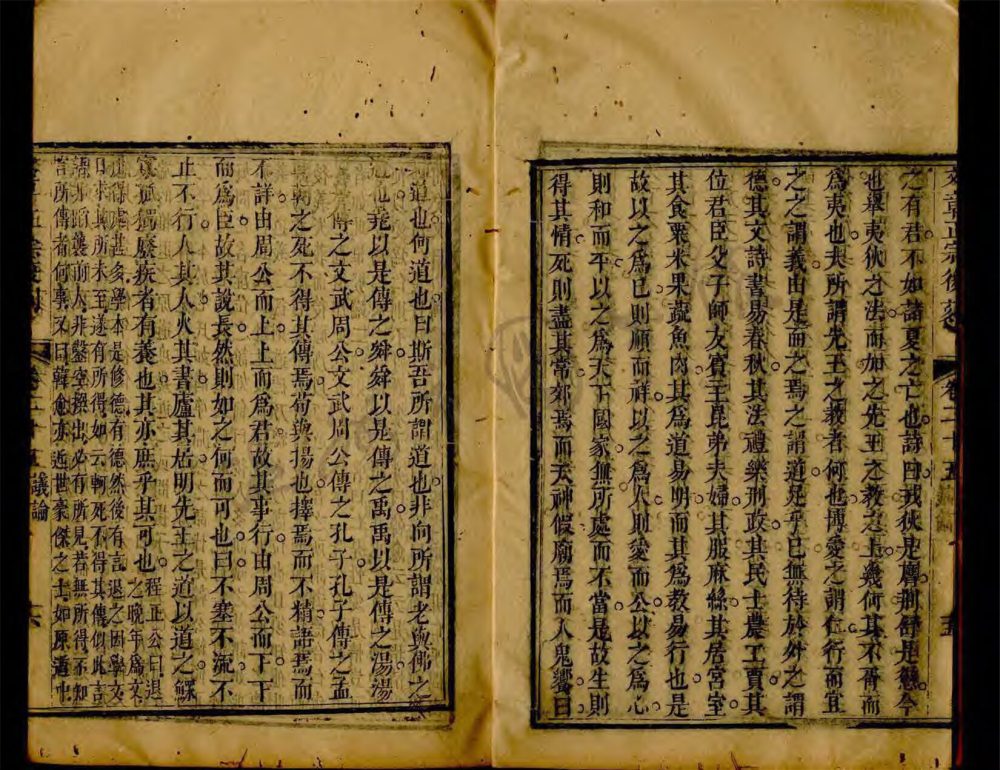 文章正宗復刻 卷二十五 五
之有君不如諸夏之亡也詩曰戎狄是膺荆舒是懲今
也舉夷狄之法而加之先王之教之上幾何其不胥而
爲夷也夫所謂先王之教者何也博愛之謂仁行而宜
之之謂義由是而之焉之謂道足乎已無待於外之謂
德其文詩書易春秋其法禮樂刑政其民士農工賈其
位君臣父子師友賓主昆弟夫婦其服麻絲其居宮室
其食粟米果蔬魚肉其爲道易明而其爲教易行也是
故以之爲已則順而祥以之爲人則愛而公以之爲心
則和而平以之爲天下國家無所處而不當是故生則
得其情死則盡其常郊焉而天神假廟焉而人鬼饗曰
道也何道也曰斯吾所謂道也非向所謂老與佛之
道也堯以是傳之舜舜以是傳之禹禹以是傳之湯湯
傳之文武周公文武周公傳之孔子孔子傳之孟
軻軻之死不得其傳焉荀與揚也擇焉而不精語焉而
不詳由周公而上上而爲君故其事行由周公而下下
而爲臣故其說長然則如之何而可也曰不塞不流不
止不行人其人火其書廬其居明先王之道以道之鰥
寡孤獨廢疾者有養也其亦庶乎其可也程正公曰退
之晚年爲文
所得處甚多學本是修德有德然後有言退之因學文
日求其所未至遂有所得如云軻死不得其傳似此言
語非蹈襲前人非鑿空撰出必有所見若無所得不知
言所傳者何事又曰韓愈亦近世豪傑之士如原道中
卷二十五 議論 六